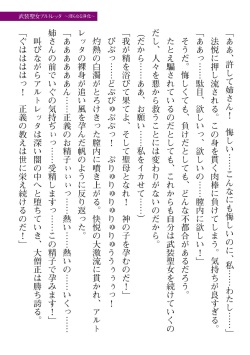 武装聖女アルトレッタ
「ああ、許して姉さん！　悔しい……こんなにも悔しいのに、私……わたし……！」
法悦に押し流される。この身を貫く肉棒に負けてしまう。気持ちが良すぎる。
「ああっ……駄目、欲しいっ……欲しいの……膣内に、欲しい！」
そうだ、悔しくても、負けだとしても、どんな不都合があるだろう。
たとえ騙されているのだとしても、これからも自分は武装聖女を続けていくの
だし、人々を悪から救わなければいけないのだから。
「だから……ああ、お願い……私をイカせて……」
「我が精を浴びて果てよ。そして聖母となれ！　神の子を孕むのだ！」
どぷぷっ……ぷりゅりゅりゅりゅうううう！
灼熱の白濁がとろけきった膣内に噴きだす。快悦の大激流に貫かれ、アルト
レッタの裸身が追い風を孕んだ帆のように反り返った。
「あああああああっ……正義のお精子いいっ……熱い……熱いのっ……いくっ……
姉さんの前でいくの気持ちぃっ……受精しますっ……この精子で孕みます！」
叫びながらアルトレッタは深い闇の中へと堕ちていき、大僧正は勝ち誇る。
「ぐはははは！　正義の教えは世に栄え続けるのだ！」